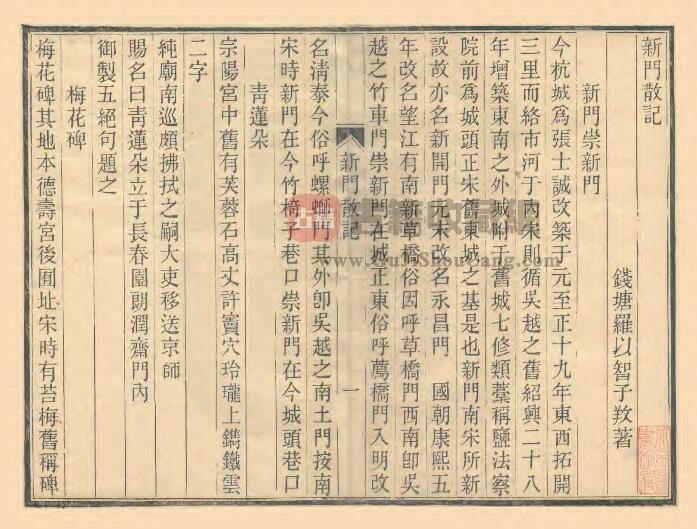 新門散記
錢塘羅以智子敉著
新門崇新門
今杭城爲張士誠改築于元至正十九年東西拓開
三里而絡市河于內宋則循吳越之舊紹興二十八
年增築東南之外城附于舊城七修類藁稱鹽法察
院前爲城頭正朱舊東城之基是也新門南宋所新
設故亦名新開門元末改名永昌門 國朝康熙五
年改名望江有南新草橋俗因呼草橋門西南卽吳
越之竹車門崇新門在城正東俗呼薦橋門入明改
新門散記 一
名淸泰今俗呼螺螄門其外卽吳越之南土門按南
宋時新門在今竹椅子巷口崇新門在今城頭巷口
靑蓮朵
宗陽宮中舊有芙蓉石高丈許竇穴玲瓏上鐫鐵雲
二字
純廟南巡頗拂拭之嗣大吏移送京師
賜名曰靑蓮朵立于長春園朗潤齋門內
御製五絕句題之
梅花碑
梅花碑其地本德壽宮後圃址宋時有苔梅舊稱碑
www.GuJiShouCang.com